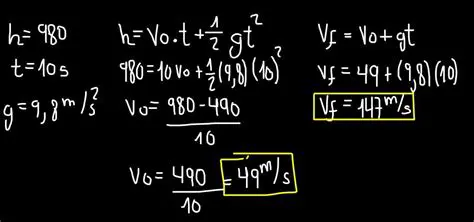 h=980
t=10s
g=9,8 m/s²
h=Vo.t+1/2 gt²
980=10Vo+1/2(9,8)(10)²
Vo=980-490/10
Vo=490/10=49 m/s
Vf=Vo+gt
Vf=49+(9,8)(10)
Vf=147 m/s